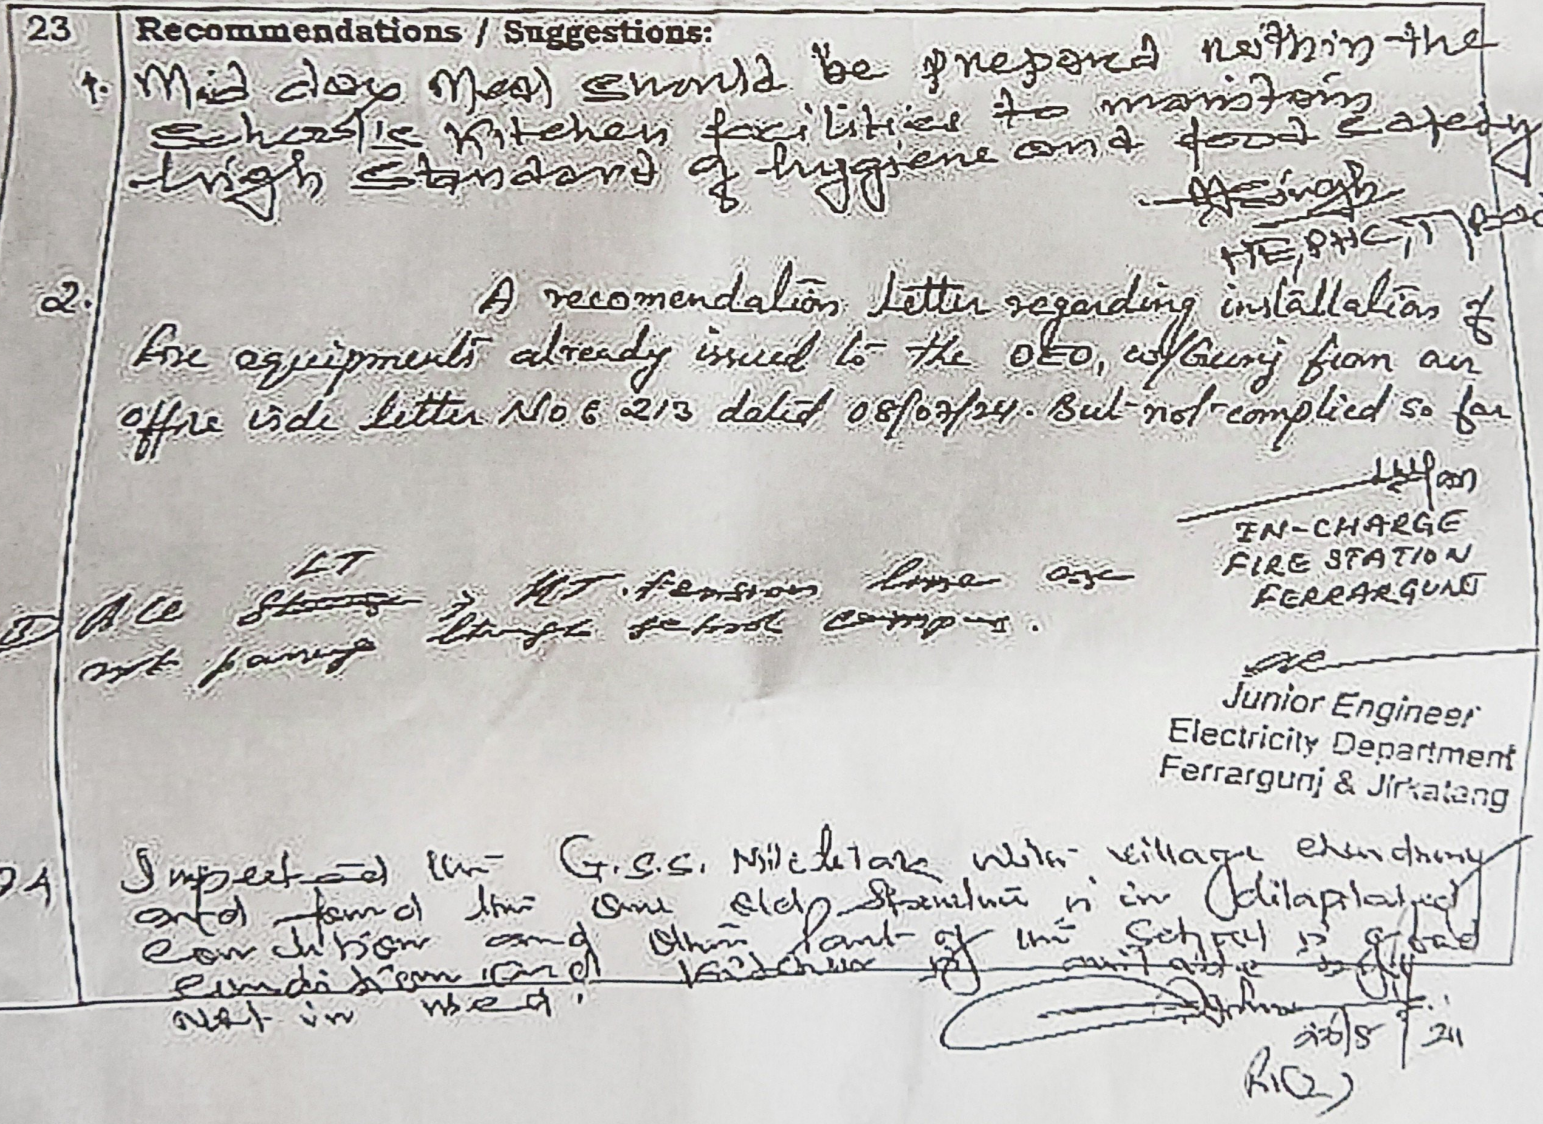 23 Recommendations / Suggestions:
1. Mid day Meal should be prepared within the
School's Kitchen facilities to maintain
high standard of hygiene and food safety
HE, PHC,
2. A recomendation letter regarding installation of
fire equipments already issued to the DEO, W/Gunj from our
office vide letter No 6 213 dated 08/07/24. But not complied so far
IN-CHARGE
FIRE STATION
FERRARGUNJ
3 All LT , HT tension line are
not passing through school campus.
Junior Engineer
Electricity Department
Ferrargunj & Jirkatang
4 Inspected the G.S.S. with village
and found the one old structure is in dilapilated
condition and other part of the School is good
condition and kitchen is
not in used.
24